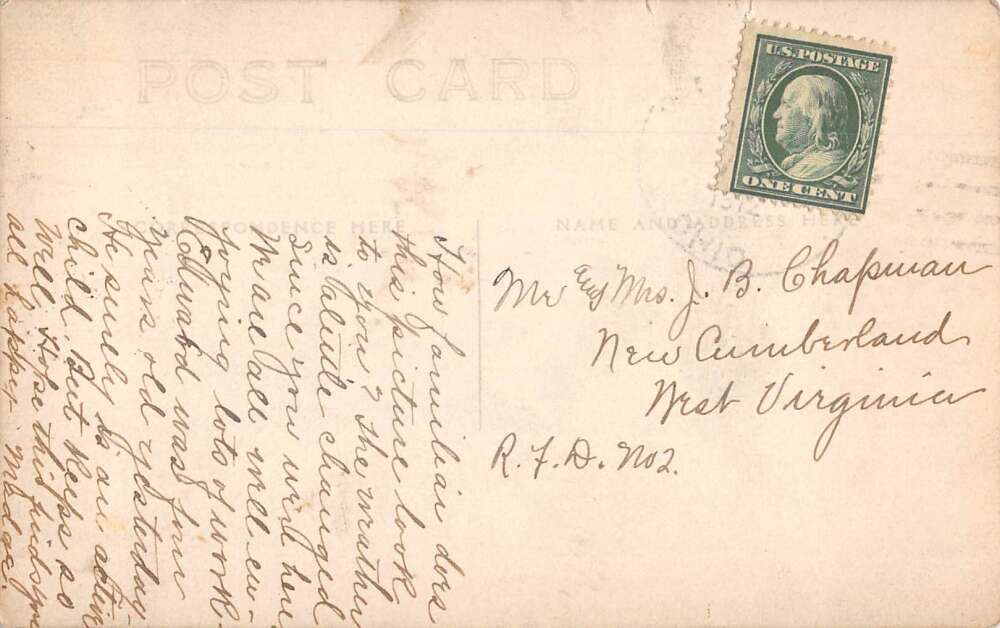 POST CARD
U.S. POSTAGE
ONE CENT
CORRESPONDENCE HERE
NAME AND ADDRESS HERE
How familiar does
this picture look
to you? The weather
is changed
since you were here
We are all well en-
joying lots of work.
Edward was four
years old yesterday.
He surely is an active
child. But keeps so
well. Hope this finds you
all happy.
Mr and Mrs. J. B. Chapman
New Cumberland
West Virginia
R. F. D. No 2.